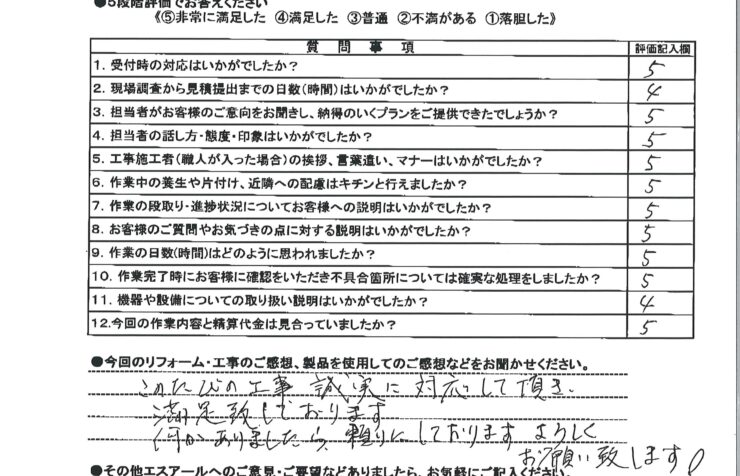 ●5段階評価でお答えください
《⑤非常に満足した ④満足した ③普通 ②不満がある ①落胆した》
質問事項 評価記入欄
1. 受付時の対応はいかがでしたか？ 5
2. 現場調査から見積提出までの日数(時間)はいかがでしたか？ 4
3. 担当者がお客様のご意向をお聞きし、納得のいくプランをご提供できたでしょうか？ 5
4. 担当者の話し方・態度・印象はいかがでしたか？ 5
5. 工事施工者(職人が入った場合)の挨拶、言葉遣い、マナーはいかがでしたか？ 5
6. 作業中の養生や片付け、近隣への配慮はキチンと行えましたか？ 5
7. 作業の段取り・進捗状況についてお客様への説明はいかがでしたか？ 5
8. お客様のご質問やお気づきの点に対する説明はいかがでしたか？ 5
9. 作業の日数(時間)はどのように思われましたか？ 5
10. 作業完了時にお客様に確認をいただき不具合箇所については確実な処理をしましたか？ 5
11. 機器や設備についての取り扱い説明はいかがでしたか？ 4
12.今回の作業内容と精算代金は見合っていましたか？ 5
●今回のリフォーム・工事のご感想、製品を使用してのご感想などをお聞かせください。
このたびの工事 誠実に対応して頂き
満足致しております
何かありましたら、頼りにしております よろしく
お願い致します。
●その他エスアールへのご意見・ご要望などありましたら、お気軽にご記入ください。